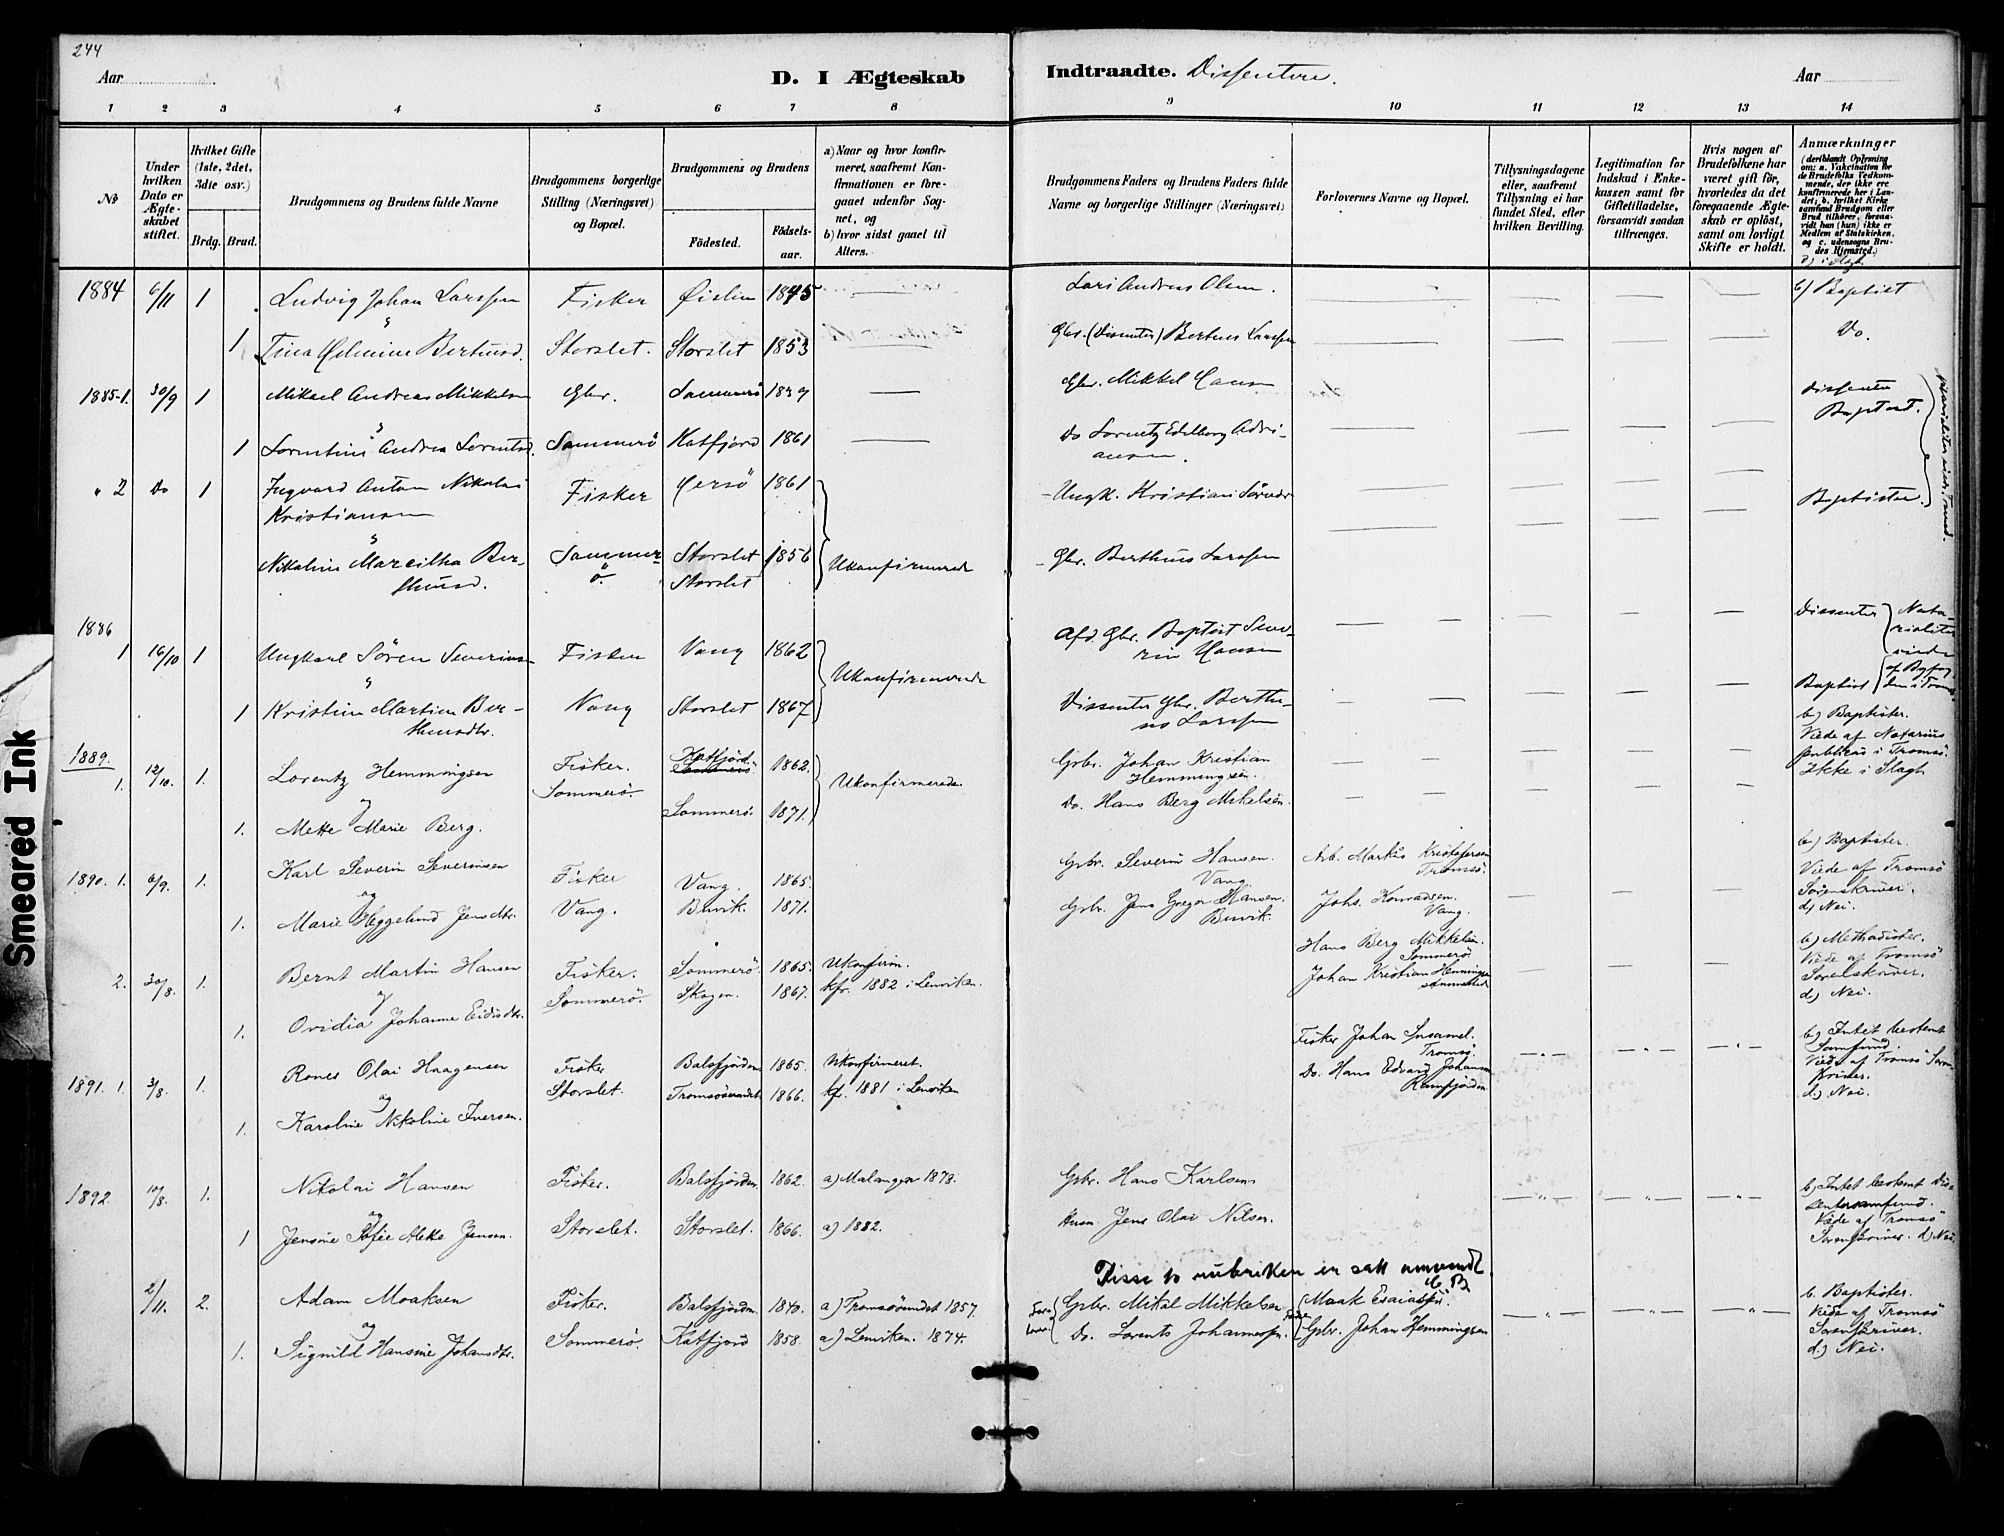 244
Aar
D. I Ægteskab
Indtraadte. Dissentere.
Aar
1 2 3 4 5 6 7 8 9 10 11 12 13 14
No
Under hvilken Dato er Ægteskabet stiftet.
Hvilket Gifte (1ste, 2det, 3die osv.)
Brdg. Brud.
Brudgommens og Brudens fulde Navne
Brudgommens borgerlige Stilling (Næringsvei) og Bopæl.
Brudgommens og Brudens
Fødested. Fødselsaar.
a) Naar og hvor konfirmeret, saafremt Konfirmationen er foregaaet udenfor Sognet, og
b) hvor sidst gaaet til Alters.
Brudgommens Faders og Brudens Faders fulde Navne og borgerlige Stillinger (Næringsvei)
Forlovernes Navne og Bopæl.
Tillysningsdagene eller, saafremt Tillysning ei har fundet Sted, efter hvilken Bevilling.
Legitimation for Indskud i Enkekassen samt for Giftetilladelse, forsaavidt saadan tiltrænges.
Hvis nogen af Brudefolkene har været gift før, hvorledes da det foregaaende Ægteskab er opløst, samt om lovligt Skifte er holdt.
Anmærkninger
(deriblandt Oplysning om: a. Vakcination for de Brudefolks Vedkommende, der ikke ere konfirmerede her i Landet; b. hvilket Kirkesamfund Brudgom eller Brud tilhører, forsaavidt han (hun) ikke er Medlem af Statskirken, og c. udensogns Brudes Hjemsted.)
1884 6/11 1 Ludvig Johan Larssen Fisker 1845 Andreas Olsen. b) Baptist
1 Bertusd. Storslet. Storslet 1853 Gbr. (Dissenter) Bertus Larssen Do.
1885-1. 30/9 1 Mikael Andreas Mikkelsen Gbr. Sommerö 1839 Gbr. Mikkel Hansen Dissenter Baptist.
1 Andrea Sommerö Katfjord 1861 Do Lorentz Edelberg Adriansen.
" 2 Do 1 Ingvard Anton Nikolai Kristiansen Fisker 1861 Ungk. Kristian Baptister
Nikoline Berthusd. Sommerö. Storslet Storslet 1856 Ukonfirmerede Gbr. Berthus Larssen
1886
1 16/10 1 Ungkarl Søren Severinsen Fisker Vang 1862 Ukonfirmerede Afd. Gbr. Baptist Severin Hansen Dissenter
1 Kristine Martine Berthusdtr. Vang Storslet 1867 Dissenter Gbr. Berthus Larssen Baptist
1889.
1. 12/10. 1. Lorentz Hemmingsen Fisker. Katfjord Sommerö. 1862. Ukonfirmerede. Grbr. Johan Kristian Hemmingsen. b) Baptister. Viede af Notarius publicus i Tromsö. Ikke i Slagt
og
1. Mette Marie Berg. Sommerö. Sommerö. 1871. Do. Hans Berg Mikelsen.
1890. 1. 6/9. 1. Karl Severin Severinsen Fisker Vang. 1865. Gbr. Severin Hansen. Vang. Arb. Markus Kristofersen Tromsö. b) Baptister. Viede af Tromsö Sorenskriver. d) Nei.
og
1. Marie Heggelund Jensdtr. Vang. Buvik. 1871. Gbr. Jens Gregor Hansen. Buvik. Johs. Konradsen. Vang.
2. 30/8. 1. Bernt Martin Hansen Fisker. Sommerö. 1865. Ukonfirm. Hans Berg Mikkelsen. Sommerö b) Methodister. Viede af Tromsö Sorenskriver. d.) Nei.
og
1. Ovidia Johanne Eidisdtr. Sommerö. Skogen. 1867. kfr. 1882 i Lenviken. Johan Kristian Hemmingsen
1891. 1. 3/8. 1. Olai Haagensen Fisker Balsfjorden 1865. Ukonfirmeret. Fisker Johan Tromsö. b) Intet bestemt Samfund. Viede af Tromsö Sorenskriver. d.) Nei.
og
1. Karoline Nikoline Iversen. Storslet. Tromsösundet 1866. kfr. 1881 i Lenviken Do. Hans Edvard Johansen Ramfjorden
1892. 10/8. 1. Nikolai Hansen Fisker. Balsfjorden. 1862. a) Malangen 1878. Gbr. Hans Karlsen b) Intet bestemt Dissentersamfund. Viede af Tromsö Sorenskriver. d) Nei.
og
1 Jensine Sofie Aleke Jensen. Storslet. Storslet. 1866. a) 1882. Husm Jens Olai Nilsen.
Disse to rubriken er satt omvendt.
2/11. 2. Adam Moaksen Fisker. Balsfjorden. 1840. a) Tromsösundet 1857. Forlover. Gbr. Mikal Mikkelsen Fædre Moak Esaiassen b. Baptister. Viede af Tromsö Sorenskriver. d.) Nei.
og
1. Signild Hansine Johansdtr. Sommerö. Katfjord 1858. a) Lenviken. 1874. Do. Lorents Johannesen. Gbr. Johan Hemmingsen
Smeared Ink